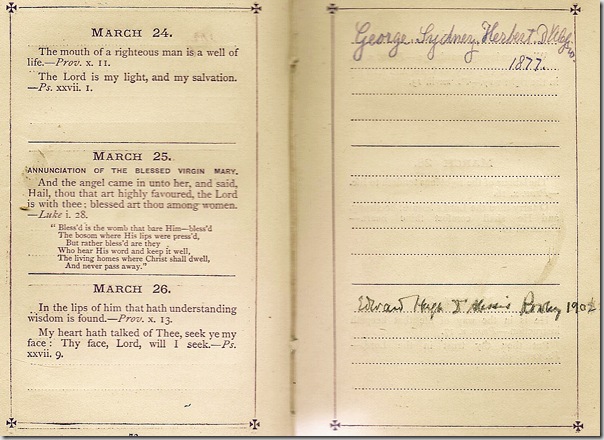 MARCH 24.
The mouth of a righteous man is a well of
life.—Prov. x. 11.
The Lord is my light, and my salvation.
—Ps. xxvii. 1.
MARCH 25.
ANNUNCIATION OF THE BLESSED VIRGIN MARY.
And the angel came in unto her, and said,
Hail, thou that art highly favoured, the Lord
is with thee; blessed art thou among women.
—Luke i. 28.
"Bless'd is the womb that bare Him—bless'd
The bosom where His lips were press'd,
But rather bless'd are they
Who hear His word and keep it well,
The living homes where Christ shall dwell,
And never pass away."
MARCH 26.
In the lips of him that hath understanding
wisdom is found.—Prov. x. 13.
My heart hath talked of Thee, seek ye my
face: Thy face, Lord, will I seek.—Ps.
xxvii. 9.
George Sydney Herbert
1877.
Edward Hugh